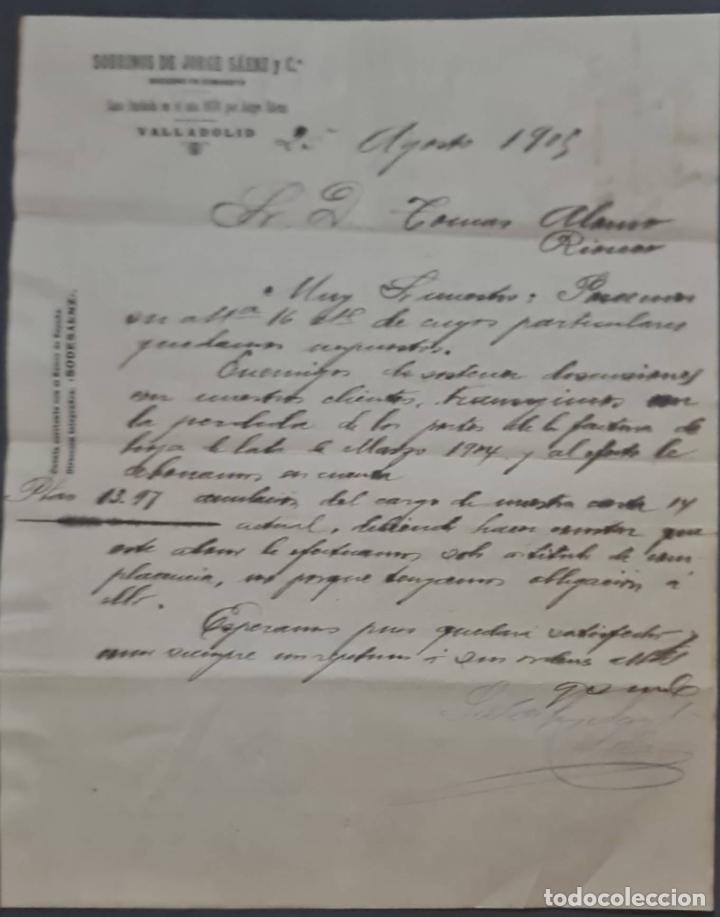 SOBRINOS DE JORGE SÁENZ y C.ª
Casa fundada en el año por Jorge Sáenz
VALLADOLID
25 Agosto 1905
Sr. D. Tomas Alonso
Rioseco
Muy Sr nuestro: Poseemos
su atta 16 de cuyos particulares
quedamos impuestos.
Enemigos de sostener discusiones
con nuestros clientes, transigimos con
la perdida de los portes de la factura de
de Marzo 1904 y al efecto le
abonamos en cuenta
Ptas 13.97 anulación del cargo de nuestra carta 14
actual, debiendo hacer constar que
este abono le efectuamos solo a titulo de com
placencia, no porque tengamos obligación á
ello.
Esperamos pues quedará satisfecho y
como siempre nos repetimos á sus ordenes
Cuenta corriente con el Banco de España
Dirección telegráfica: «SODESAENZ»
todocoleccion